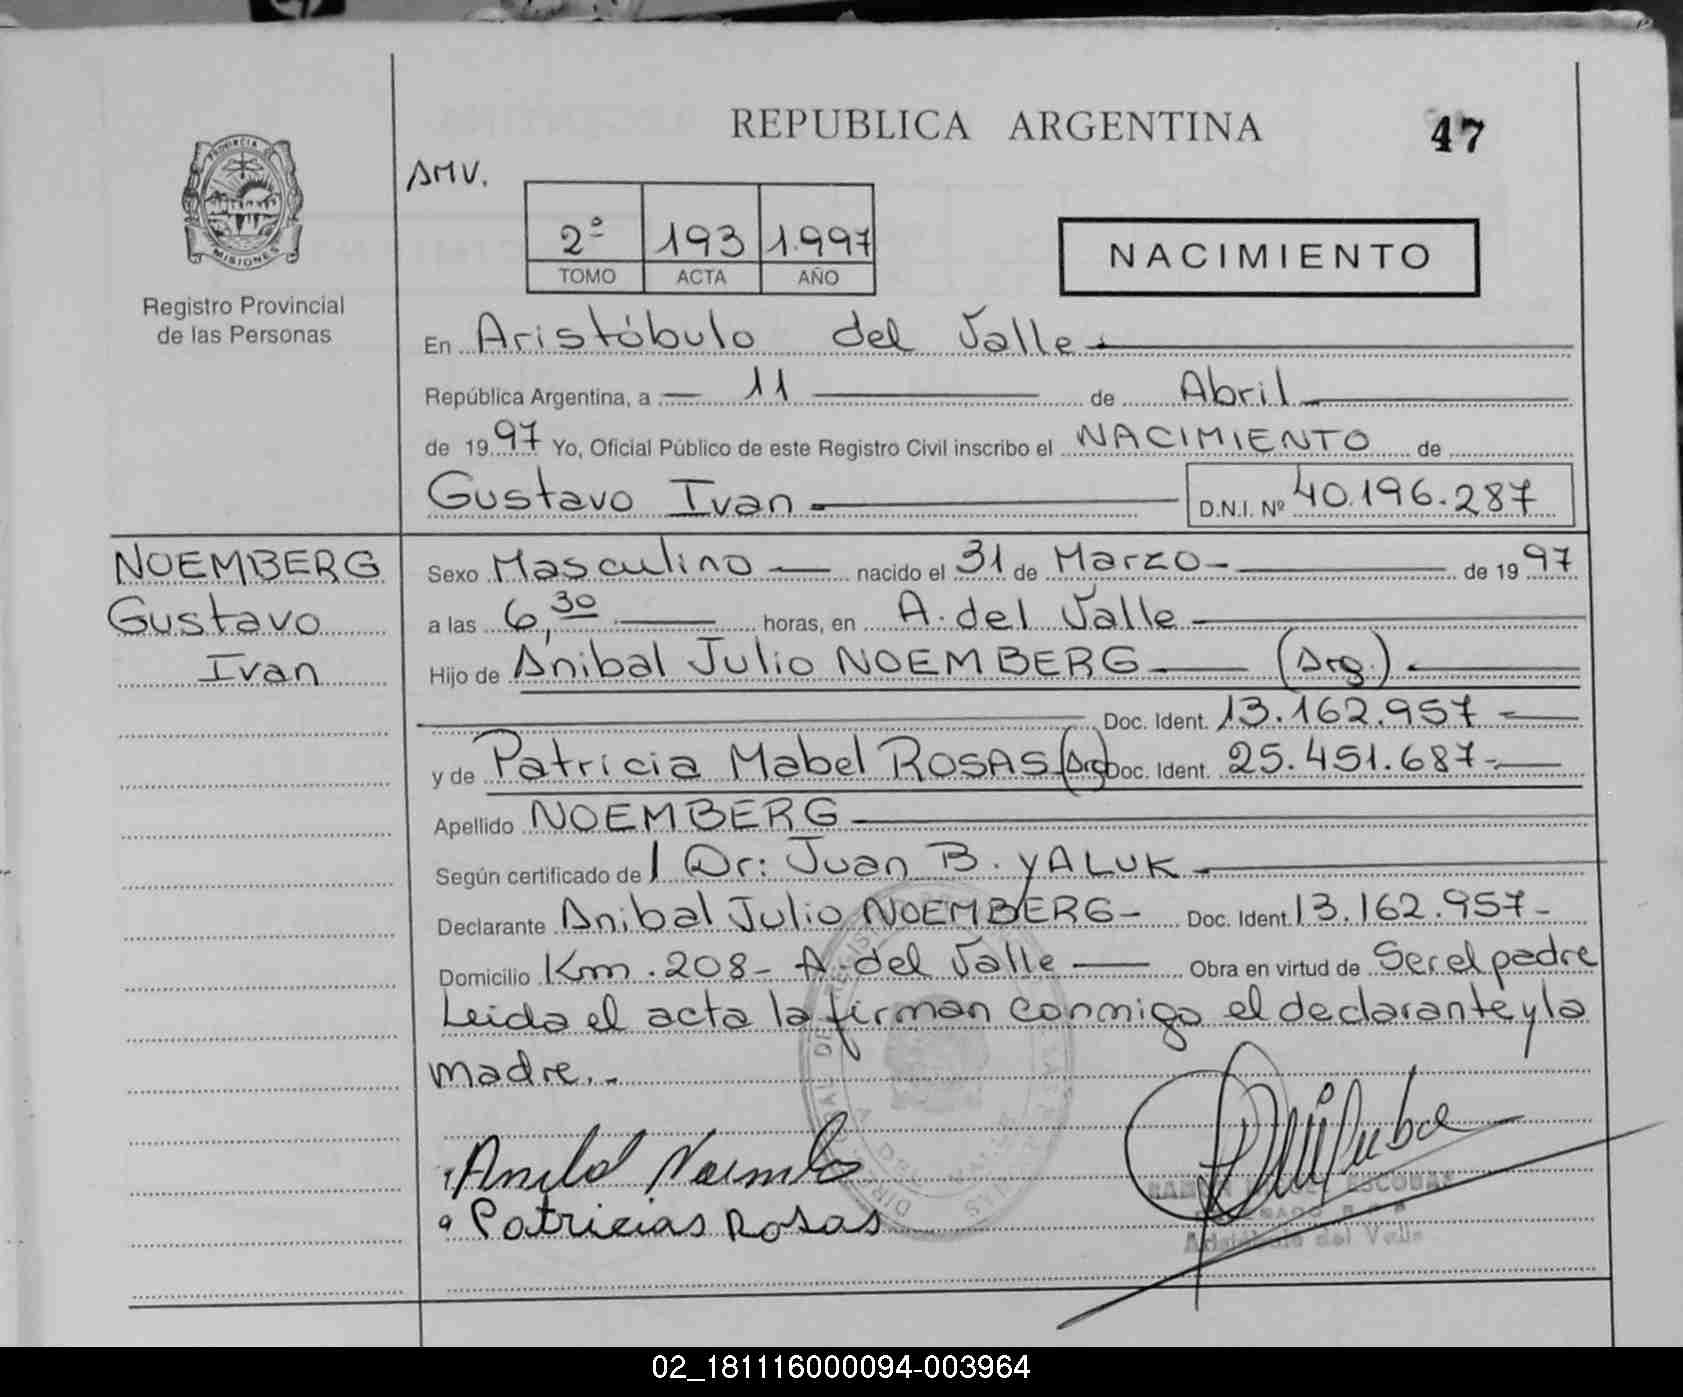 REPUBLICA ARGENTINA
47
AMV.
2º 193 1.997
TOMO ACTA AÑO
NACIMIENTO
PROVINCIA DE
MISIONES
Registro Provincial
de las Personas
En Aristóbulo del Valle
República Argentina, a 11 de Abril
de 1997 Yo, Oficial Público de este Registro Civil inscribo el NACIMIENTO de
Gustavo Ivan D.N.I. Nº 40.196.287
NOEMBERG
Gustavo
Ivan
Sexo Masculino nacido el 31 de Marzo de 1997
a las 6,30 horas, en A. del Valle
Hijo de Anibal Julio NOEMBERG (Arg.)
Doc. Ident. 13.162.957
y de Patricia Mabel ROSAS (Arg) Doc. Ident. 25.451.687
Apellido NOEMBERG
Según certificado de Dr: Juan B. YALUK
Declarante Anibal Julio NOEMBERG Doc. Ident. 13.162.957
Domicilio Km. 208 - A. del Valle Obra en virtud de Ser el padre
Leida el acta la firman conmigo el declarante y la
madre.
Patricias Rosas
ESCOBAR
Aristóbulo del Valle
02_181116000094-003964